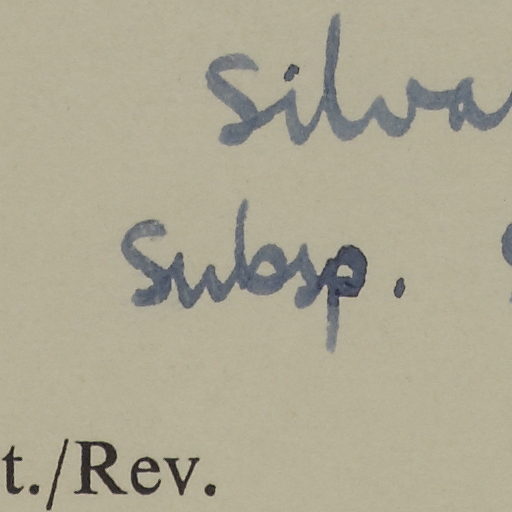 Silva
Subsp.
t./Rev.